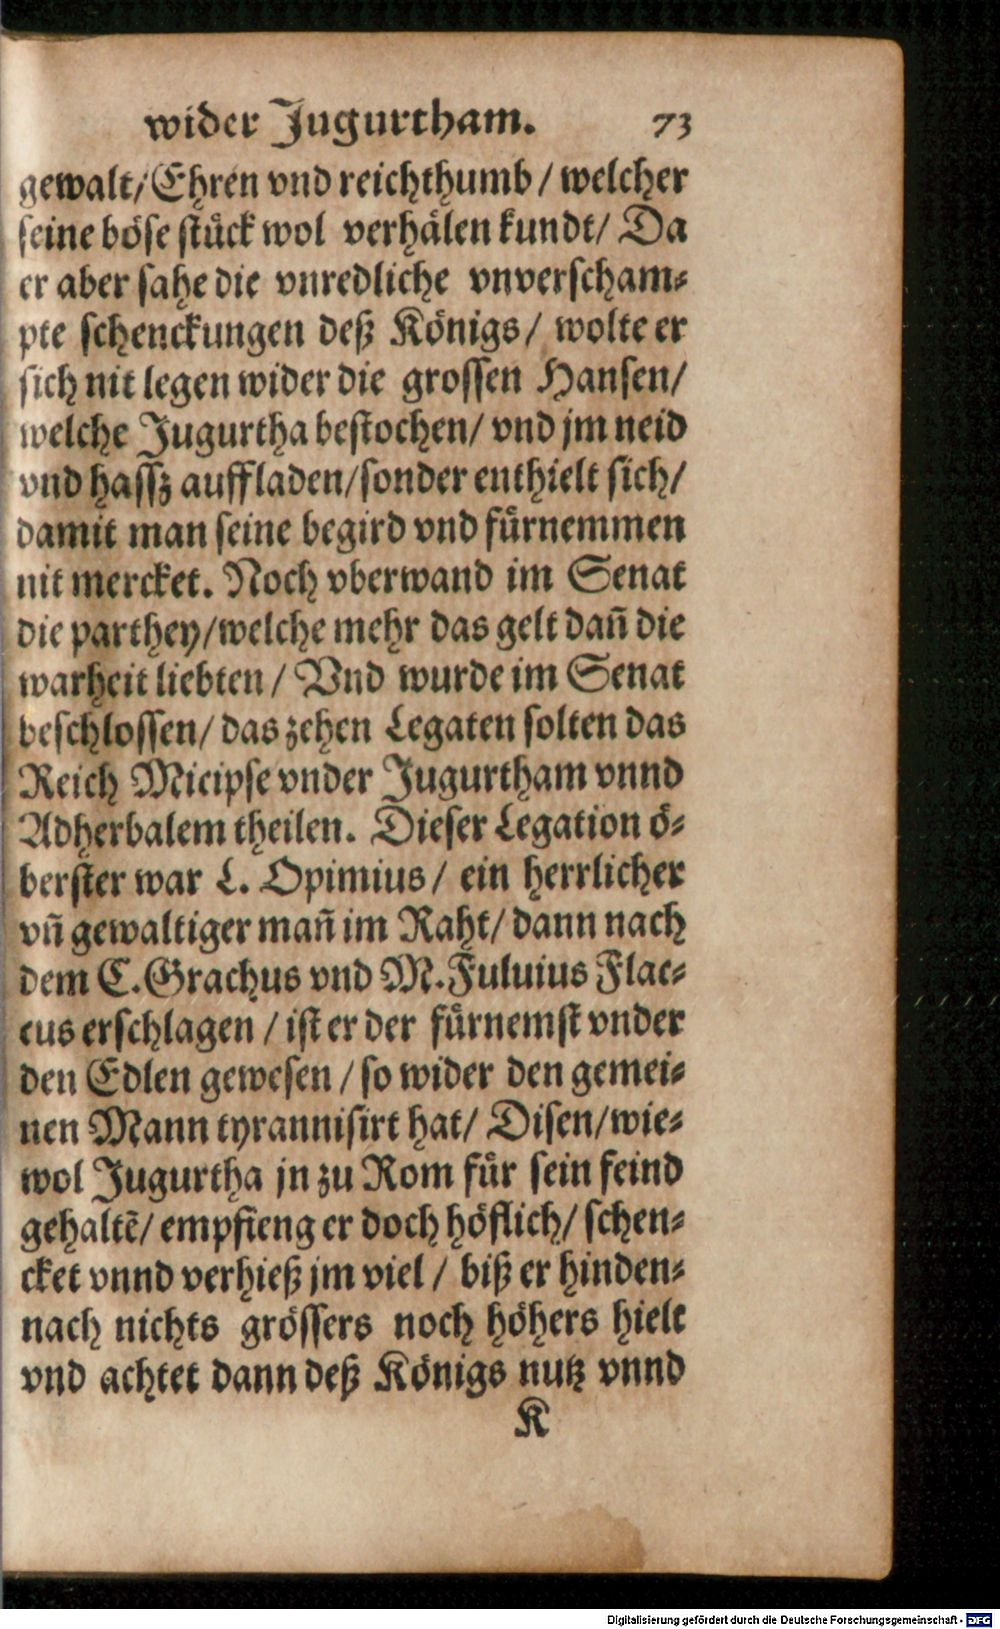 wider Jugurtham. 73
gewalt/ Ehren vnd reichthumb / welcher
seine böse stück wol verhälen kundt/ Da
er aber sahe die vnredliche vnverscham⸗
pte schenckungen deß Königs/ wolte er
sich nit legen wider die grossen Hansen/
welche Jugurtha bestochen/ vnd jm neid
vnd hassz auffladen/sonder enthielt sich/
damit man seine begird vnd fürnemmen
nit mercket. Noch vberwand im Senat
die parthey/welche mehr das gelt dañ die
warheit liebten / Vnd wurde im Senat
beschlossen/ das zehen Legaten solten das
Reich Micipse vnder Jugurtham vnnd
Adherbalem theilen. Dieser Legation ö⸗
berster war L. Opimius/ ein herrlicher
vñ gewaltiger mañ im Raht/ dann nach
dem C. Grachus vnd M. Fuluius Flac⸗
cus erschlagen / ist er der fürnemst vnder
den Edlen gewesen / so wider den gemei⸗
nen Mann tyrannisirt hat/ Disen/wie⸗
wol Jugurtha jn zu Rom für sein feind
gehaltẽ/ empfieng er doch höflich/ schen⸗
cket vnnd verhieß jm viel / biß er hinden⸗
nach nichts grössers noch höhers hielt
vnd achtet dann deß Königs nutz vnnd
K
Digitalisierung gefördert durch die Deutsche Forschungsgemeinschaft - DFG